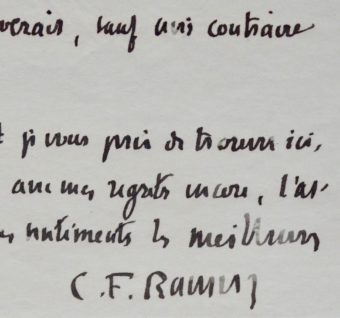 verais, sauf avis contraire
je vous prie de trouver ici,
avec mes regrets encore, l'as-
sentiments les meilleurs
C.F. Ramuz